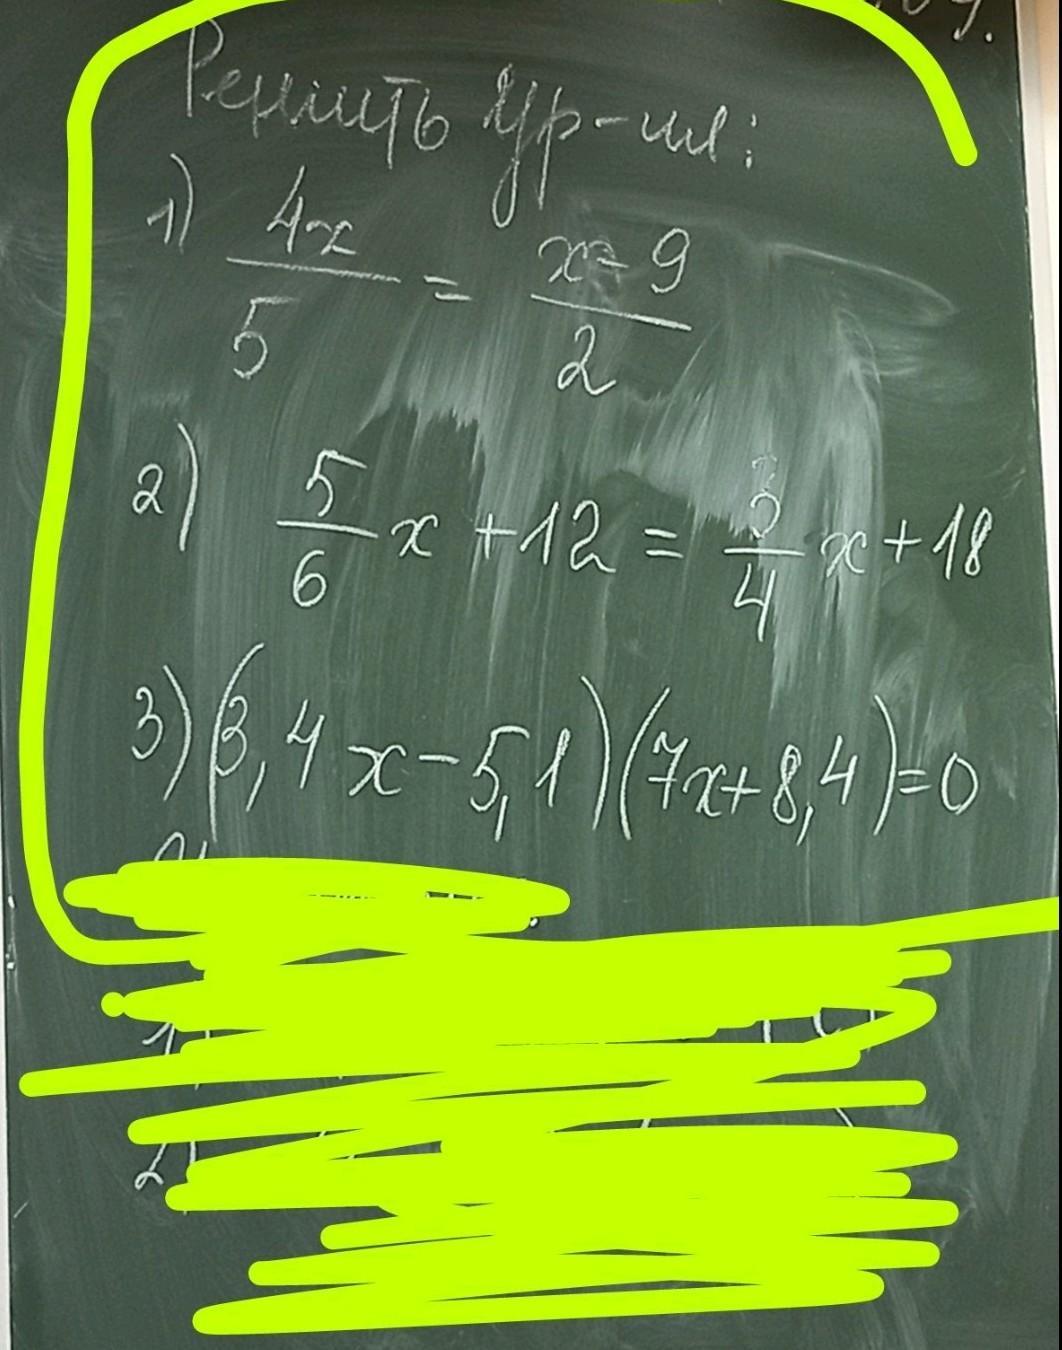 Решить ур-ия:
1) 4x/5 = x-9/2
2) 5/6 x + 12 = 3/4 x + 18
3) (3,4x - 5,1)(7x + 8,4) = 0
1)
2)